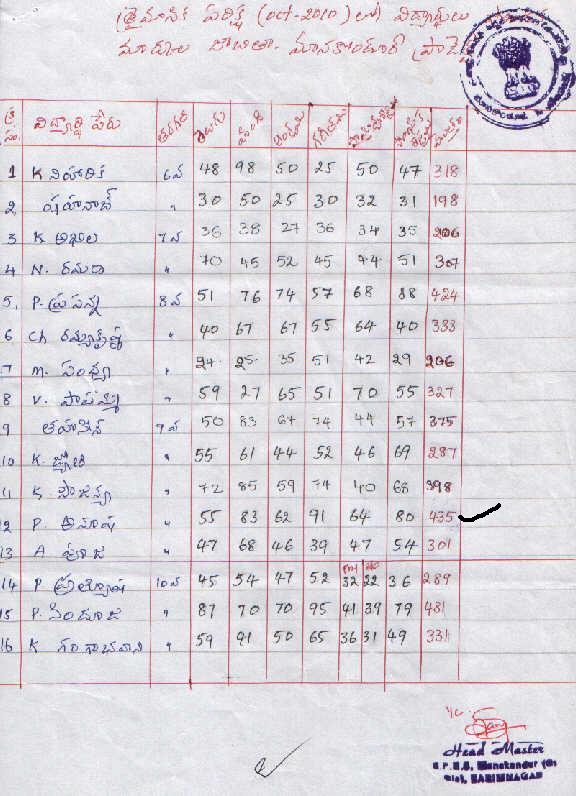 త్రైమాసిక పరీక్ష (oct-2010) లో విద్యార్థులు
మార్కుల జాబితా. మానకొండూర్
క్ర సం. విద్యార్థి పేరు తరగతి తెలుగు హింది ఇంగ్లీషు గణితము సాంఘిక మొత్తం
1 K నిహారిక 6వ 48 98 50 25 50 47 318
2 షహనాజ్ " 30 50 25 30 32 31 198
3 K అఖిల 7వ 36 38 27 36 34 35 206
4 N. రమాదేవి " 70 45 52 45 44 51 307
5, P. ప్రసన్న 8వ 51 76 74 57 68 88 424
6 Ch రమ్యకృష్ణ " 40 67 67 55 64 40 333
7 M. సంధ్య " 24 25 35 51 42 29 206
8 V. పావని " 59 27 65 51 70 55 327
9 తహసీన్ 9వ 50 83 67 74 44 57 375
10 K. జ్యోతి " 55 61 44 52 46 69 287
11 K. సౌజన్య " 72 85 59 74 40 68 398
12 P. అనూష " 55 83 62 91 64 80 435
13 A పూజ " 47 68 46 39 47 54 301
PS NS
14 P ప్రత్యూష 10వ 45 54 47 52 32 22 36 289
15 P. సింధూజ " 87 70 70 95 41 39 79 481
16 K గంగాభవాని " 59 91 50 65 36 31 49 331
Head Master
Manakondur
Dist, KARIMNAGAR